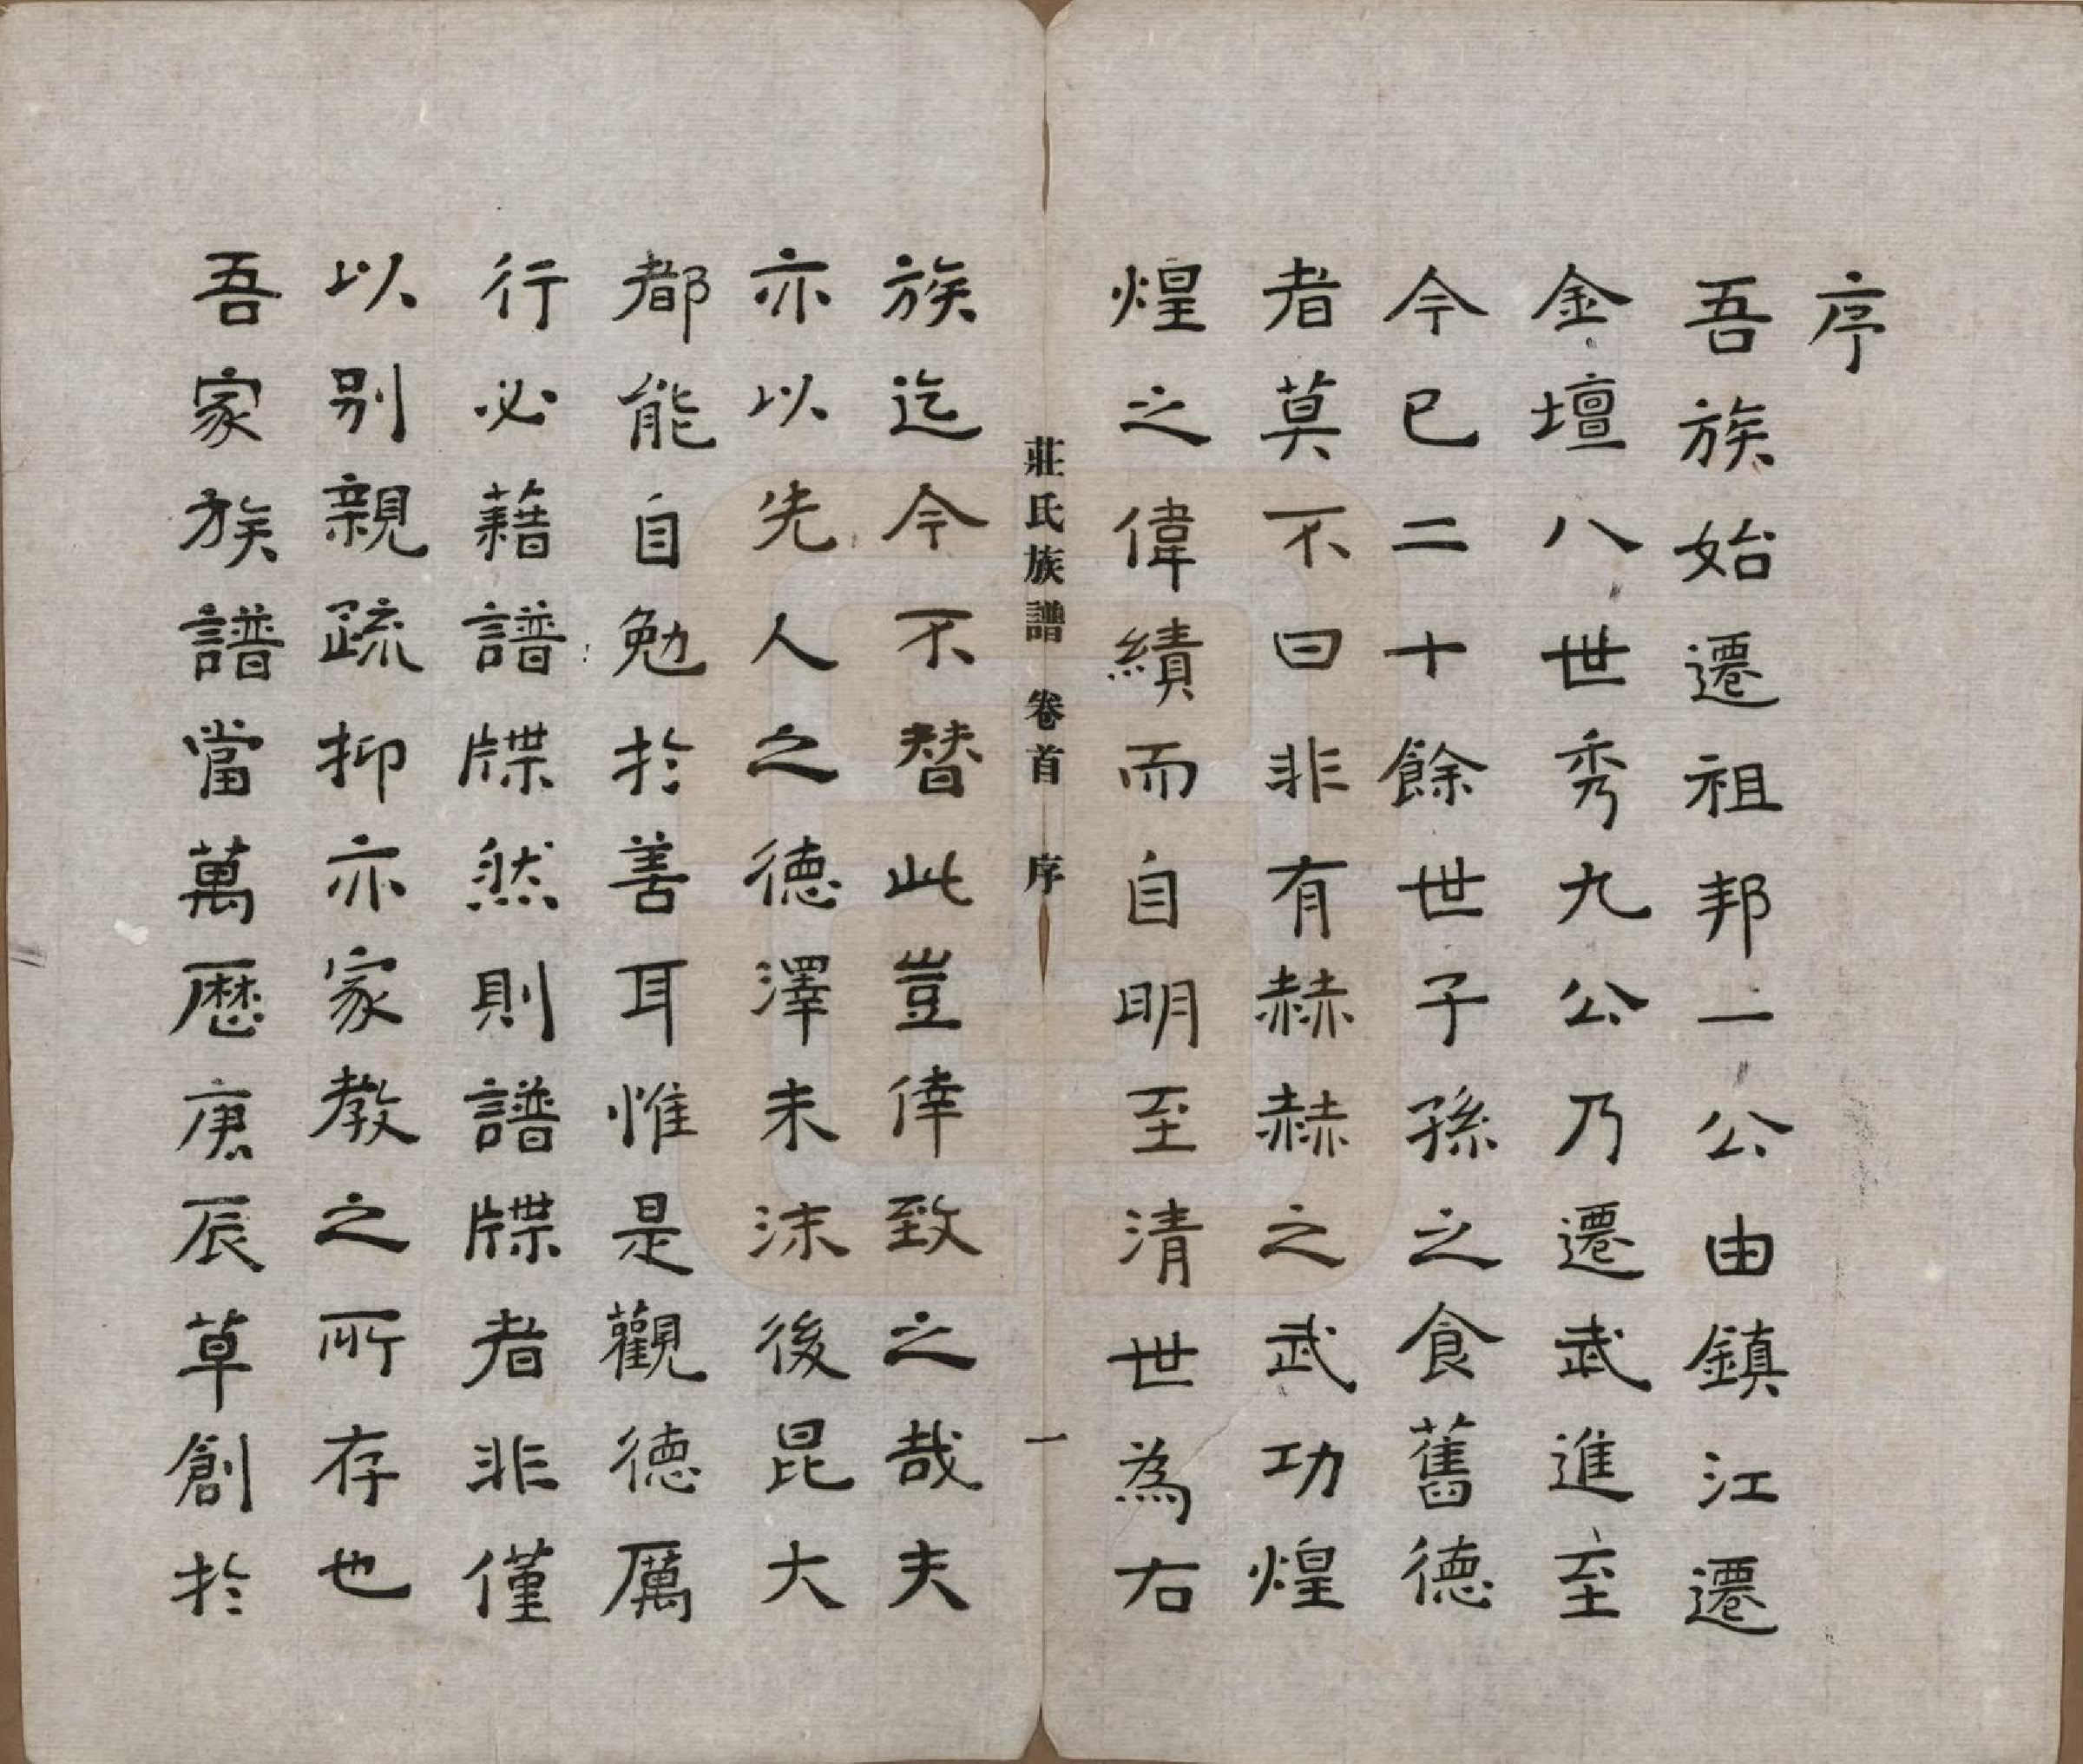 序
吾族始遷祖邦一公由鎮江遷
金壇八世秀九公乃遷武進至
今已二十餘世子孫之食舊德
者莫不曰非有赫赫之武功煌
煌之偉績而自明至清世為右
莊氏族譜 卷首 序 一
族迄今不替此豈倖致之哉夫
亦以先人之德澤未沫後昆大
都能自勉於善耳惟是觀德厲
行必藉譜牒然則譜牒者非僅
以別親疏抑亦家教之所存也
吾家族譜當萬曆庚辰草創於